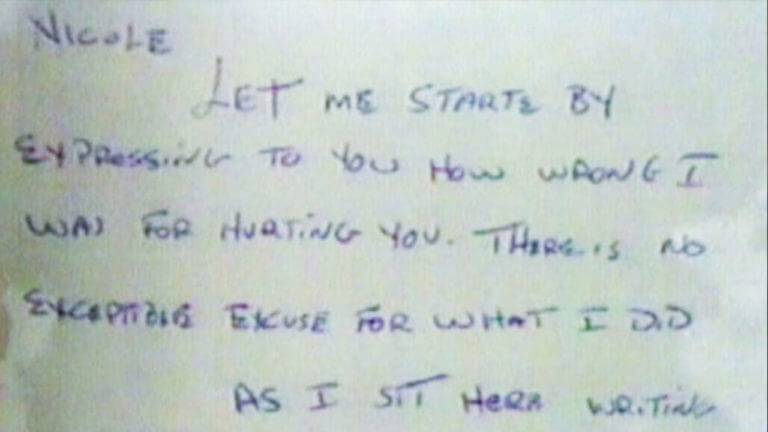 NICOLE
LET ME STARTE BY
EXPRESSING TO YOU HOW WRONG I
WAS FOR HURTING YOU. THERE IS NO
EXCEPTIBLE EXCUSE FOR WHAT I DID
AS I SIT HERE WRITING